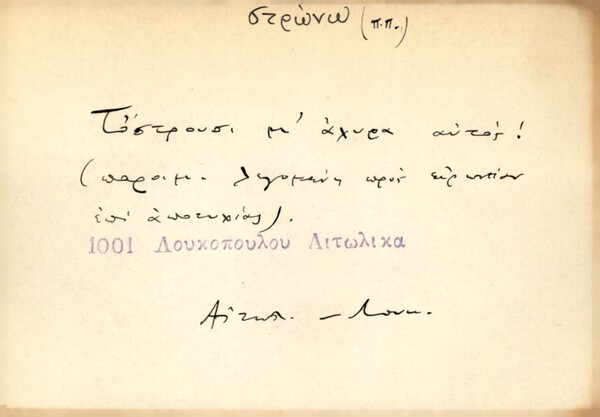 στρώνω (π.π.)
Τὄστρουσι μ' ἄχυρα αὐτός!
(παροιμ. λεγομένη πρὸς εἰρωνείαν
ἐπὶ ἀποτυχίας).
1001 Λουκοπουλου Αιτωλικα
Αἰτωλ. – Λουκ.